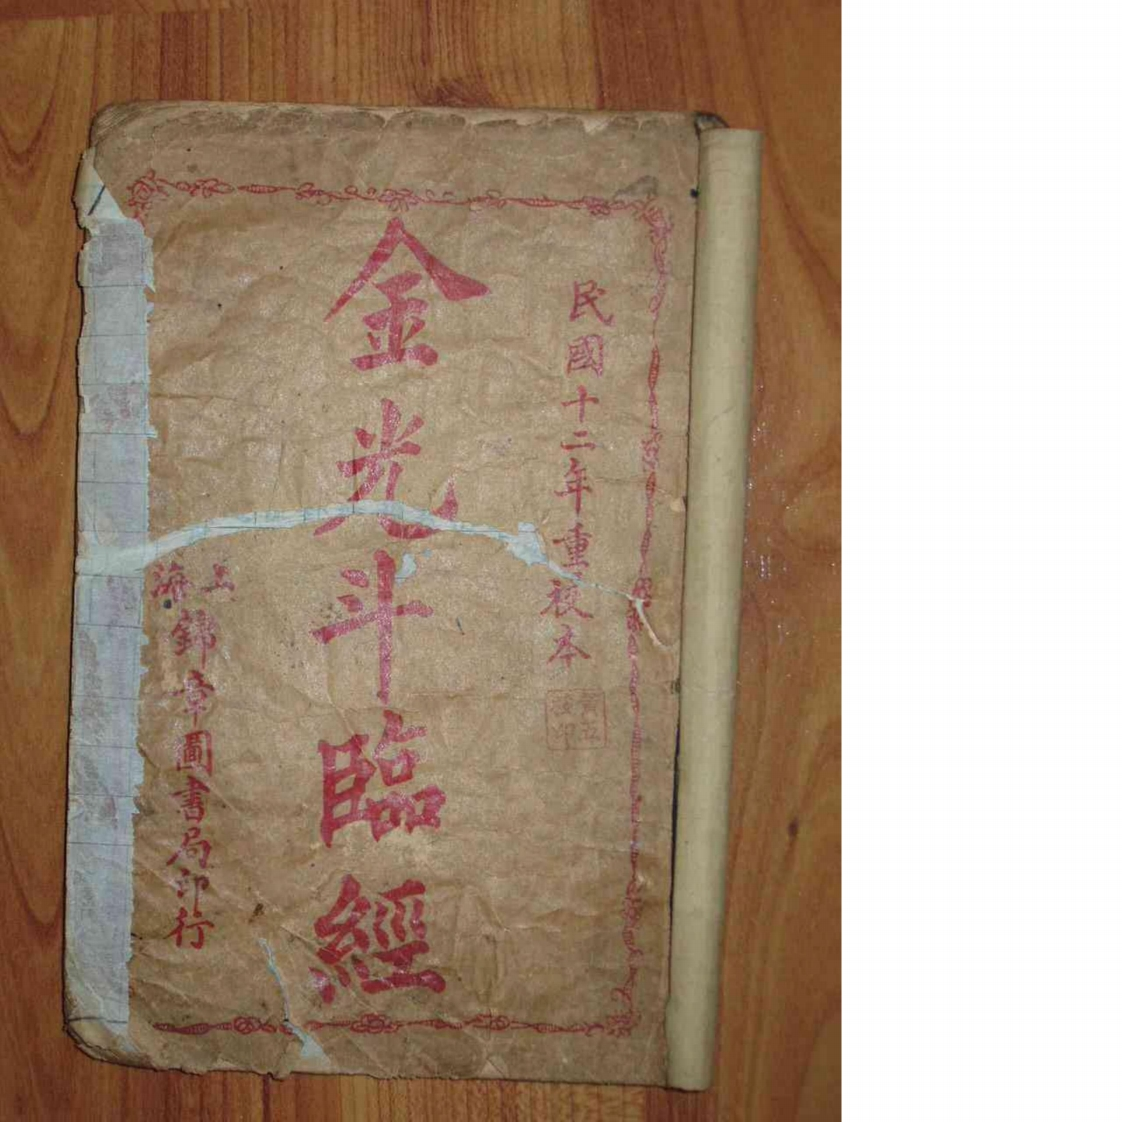 民國十二年重校本
金光斗臨經
上海
錦章圖書局印行